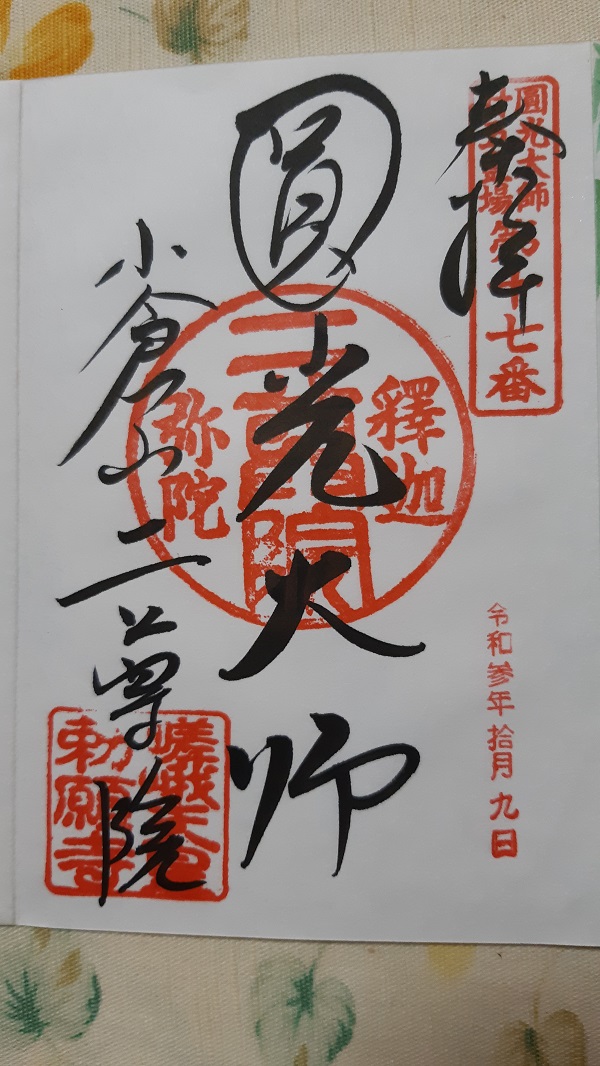 奉拝
圓光大師
第十七番
圓光大師
釋迦
二尊院
弥陀
小倉山二尊院
令和参年拾月九日
勅願寺